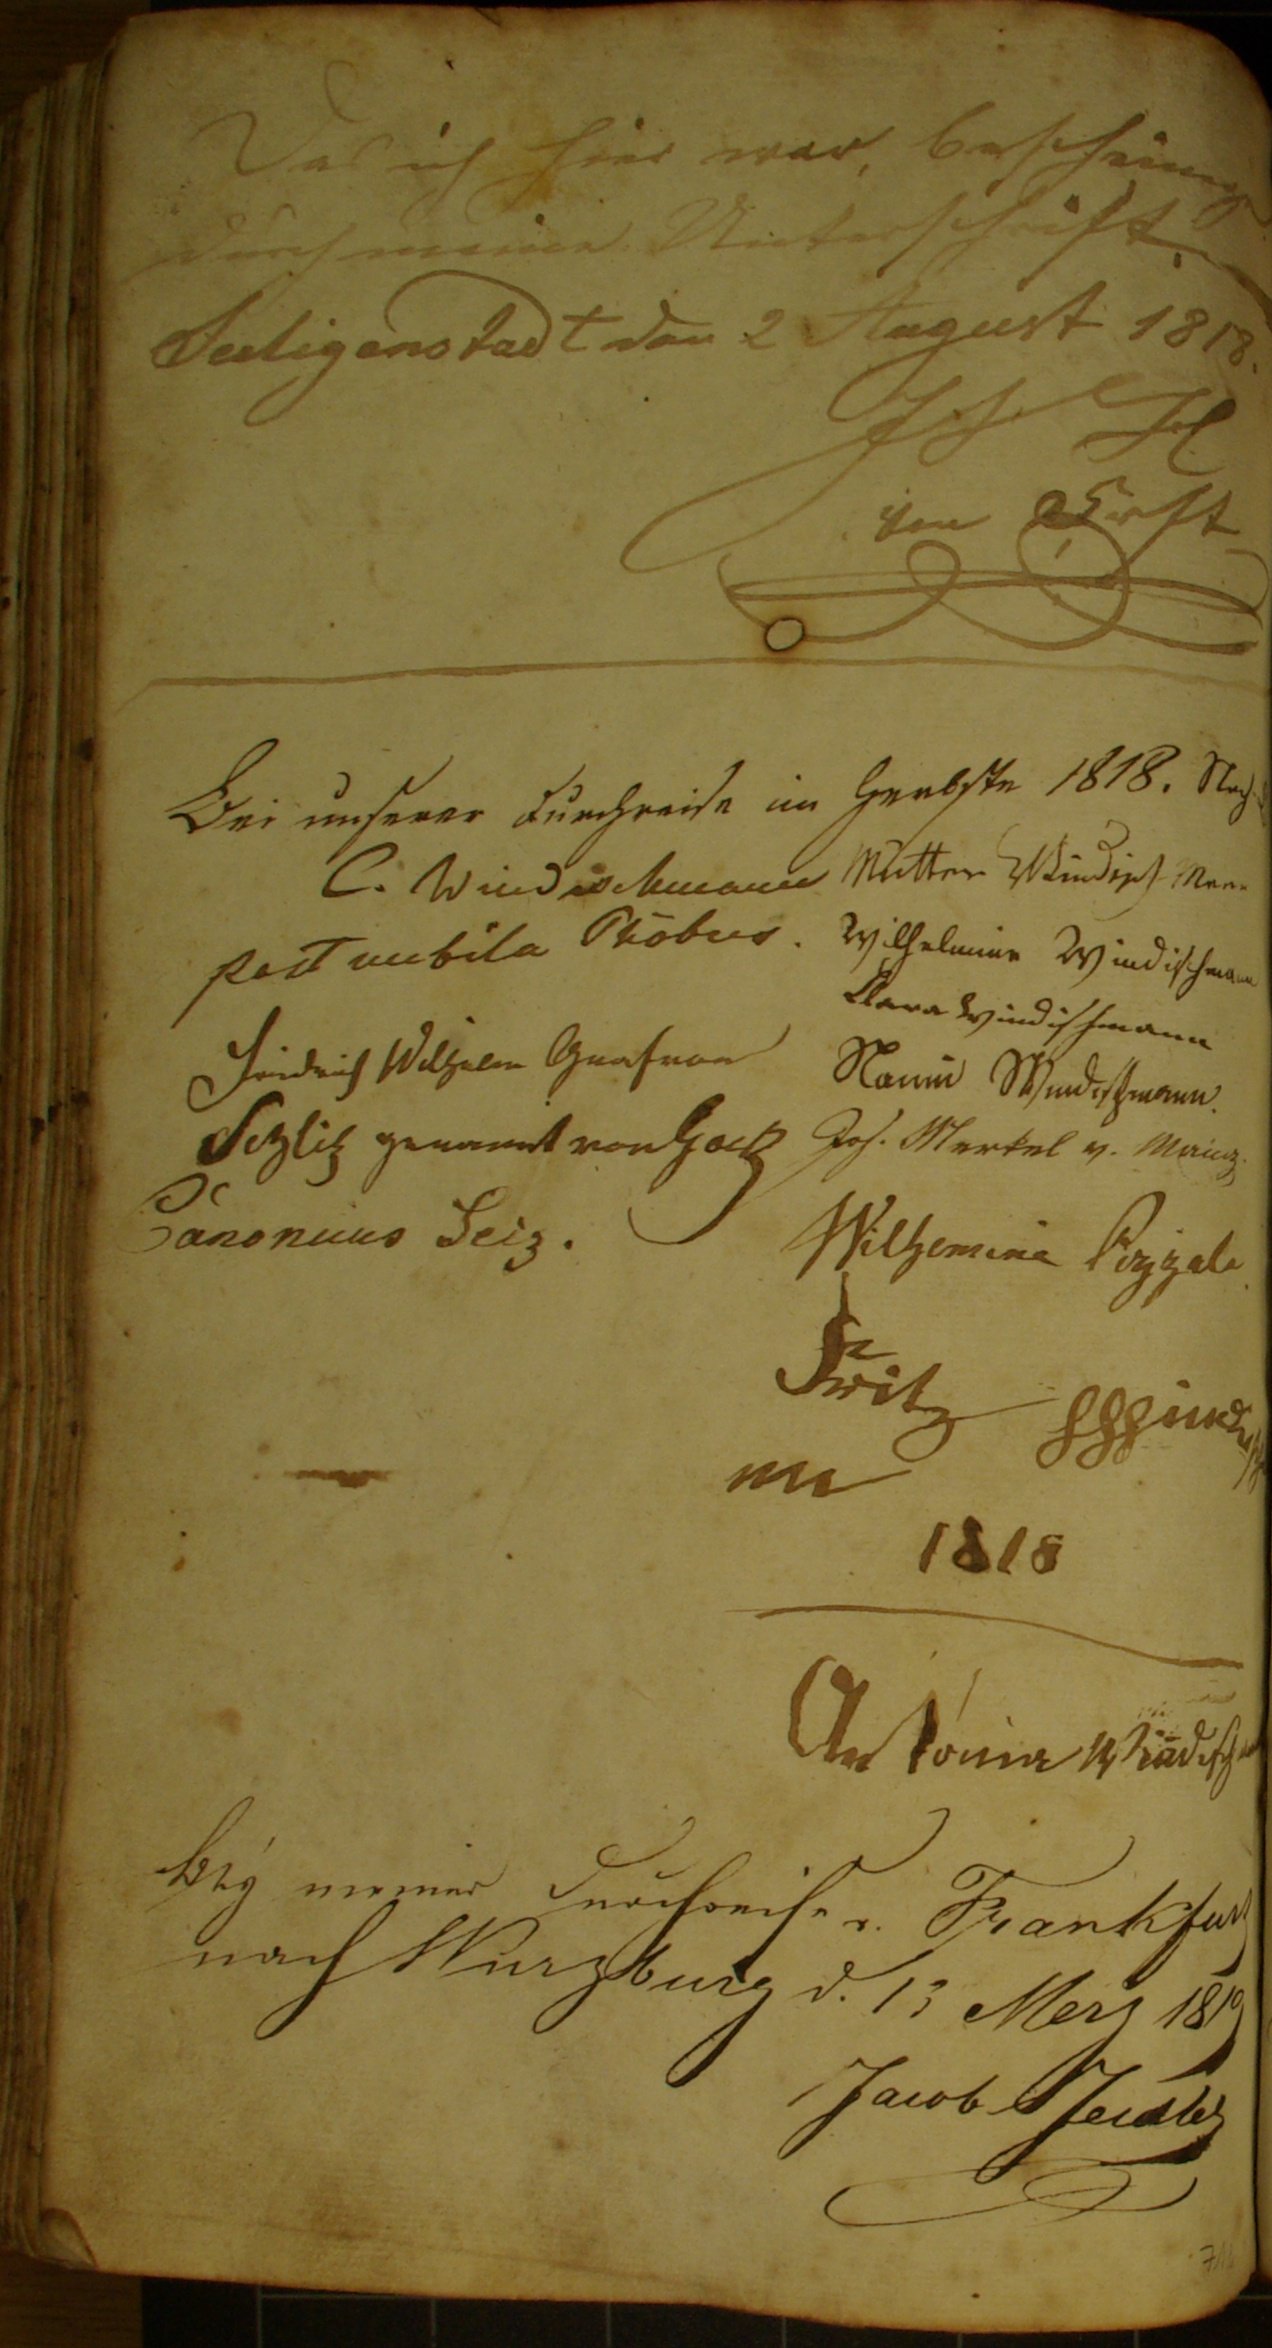 Das ich hier war, bescheinige
durch meine Unterschrift.
Seeligenstadt den 2 August 1818.
von
Bei unserer Durchreise im Herbste 1818.
C. Windischmann
post nubila Phöbus.
Mutter Windischmann
Wilhelmine Windischmann
Clara Windischmann
Friedrich Wilhelm Graf von
Nanni Windischmann.
genannt von
Jos. Merkel v. Mainz.
Canonicus Seiz.
Wilhemina
Fritz
1818
Antonia Windisch
Bey meiner Durchreise v. Frankfurt
nach Wurzburg d. 13 Merz 1819
Jacob